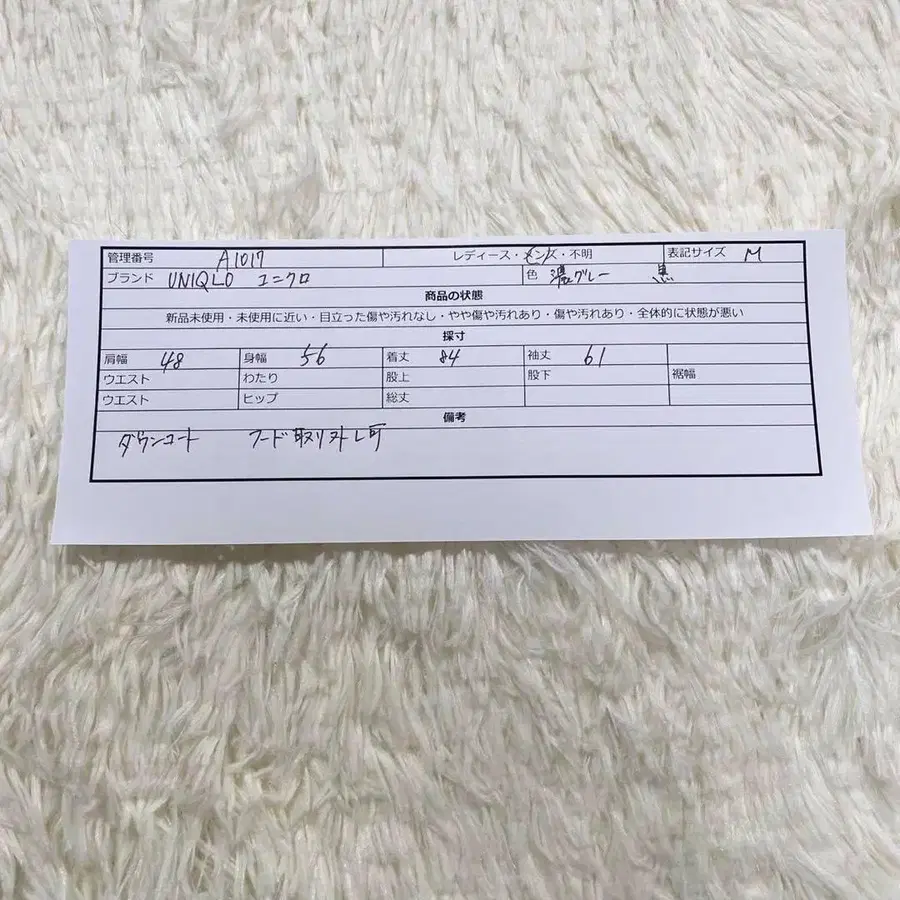 管理番号 A1017 レディース・メンズ・不明 表記サイズ M
ブランド UNIQLO ユニクロ 色 濃グレー 黒
商品の状態
新品未使用・未使用に近い・目立った傷や汚れなし・やや傷や汚れあり・傷や汚れあり・全体的に状態が悪い
採寸
肩幅 48 身幅 56 着丈 84 袖丈 61
ウエスト わたり 股上 股下 裾幅
ウエスト ヒップ 総丈
備考
ダウンコート フード取り外し可